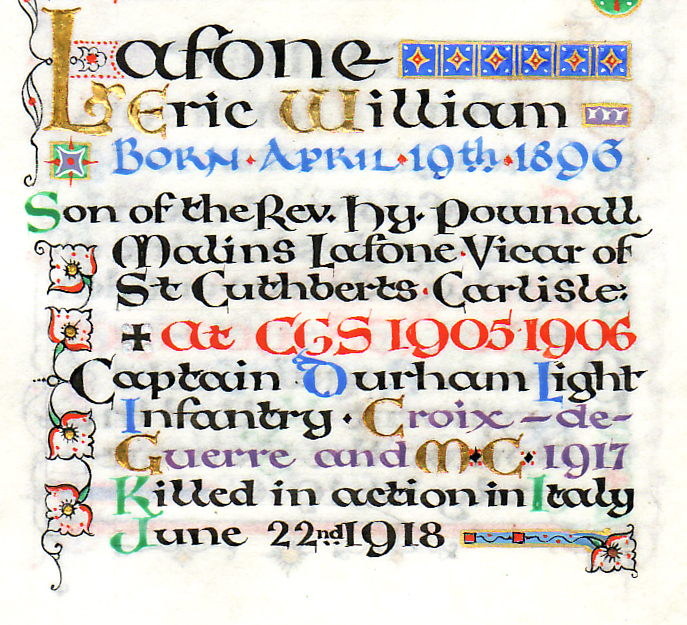 Lafone
Eric William
Born·April·19th·1896
Son of the Rev. Hy. Pownall
Malins Lafone·Vicar of
St Cuthberts·Carlisle:
at CGS 1905·1906
Captain Durham Light
Infantry · Croix-de-
Guerre and M·C· 1917
Killed in action in Italy
June 22nd 1918